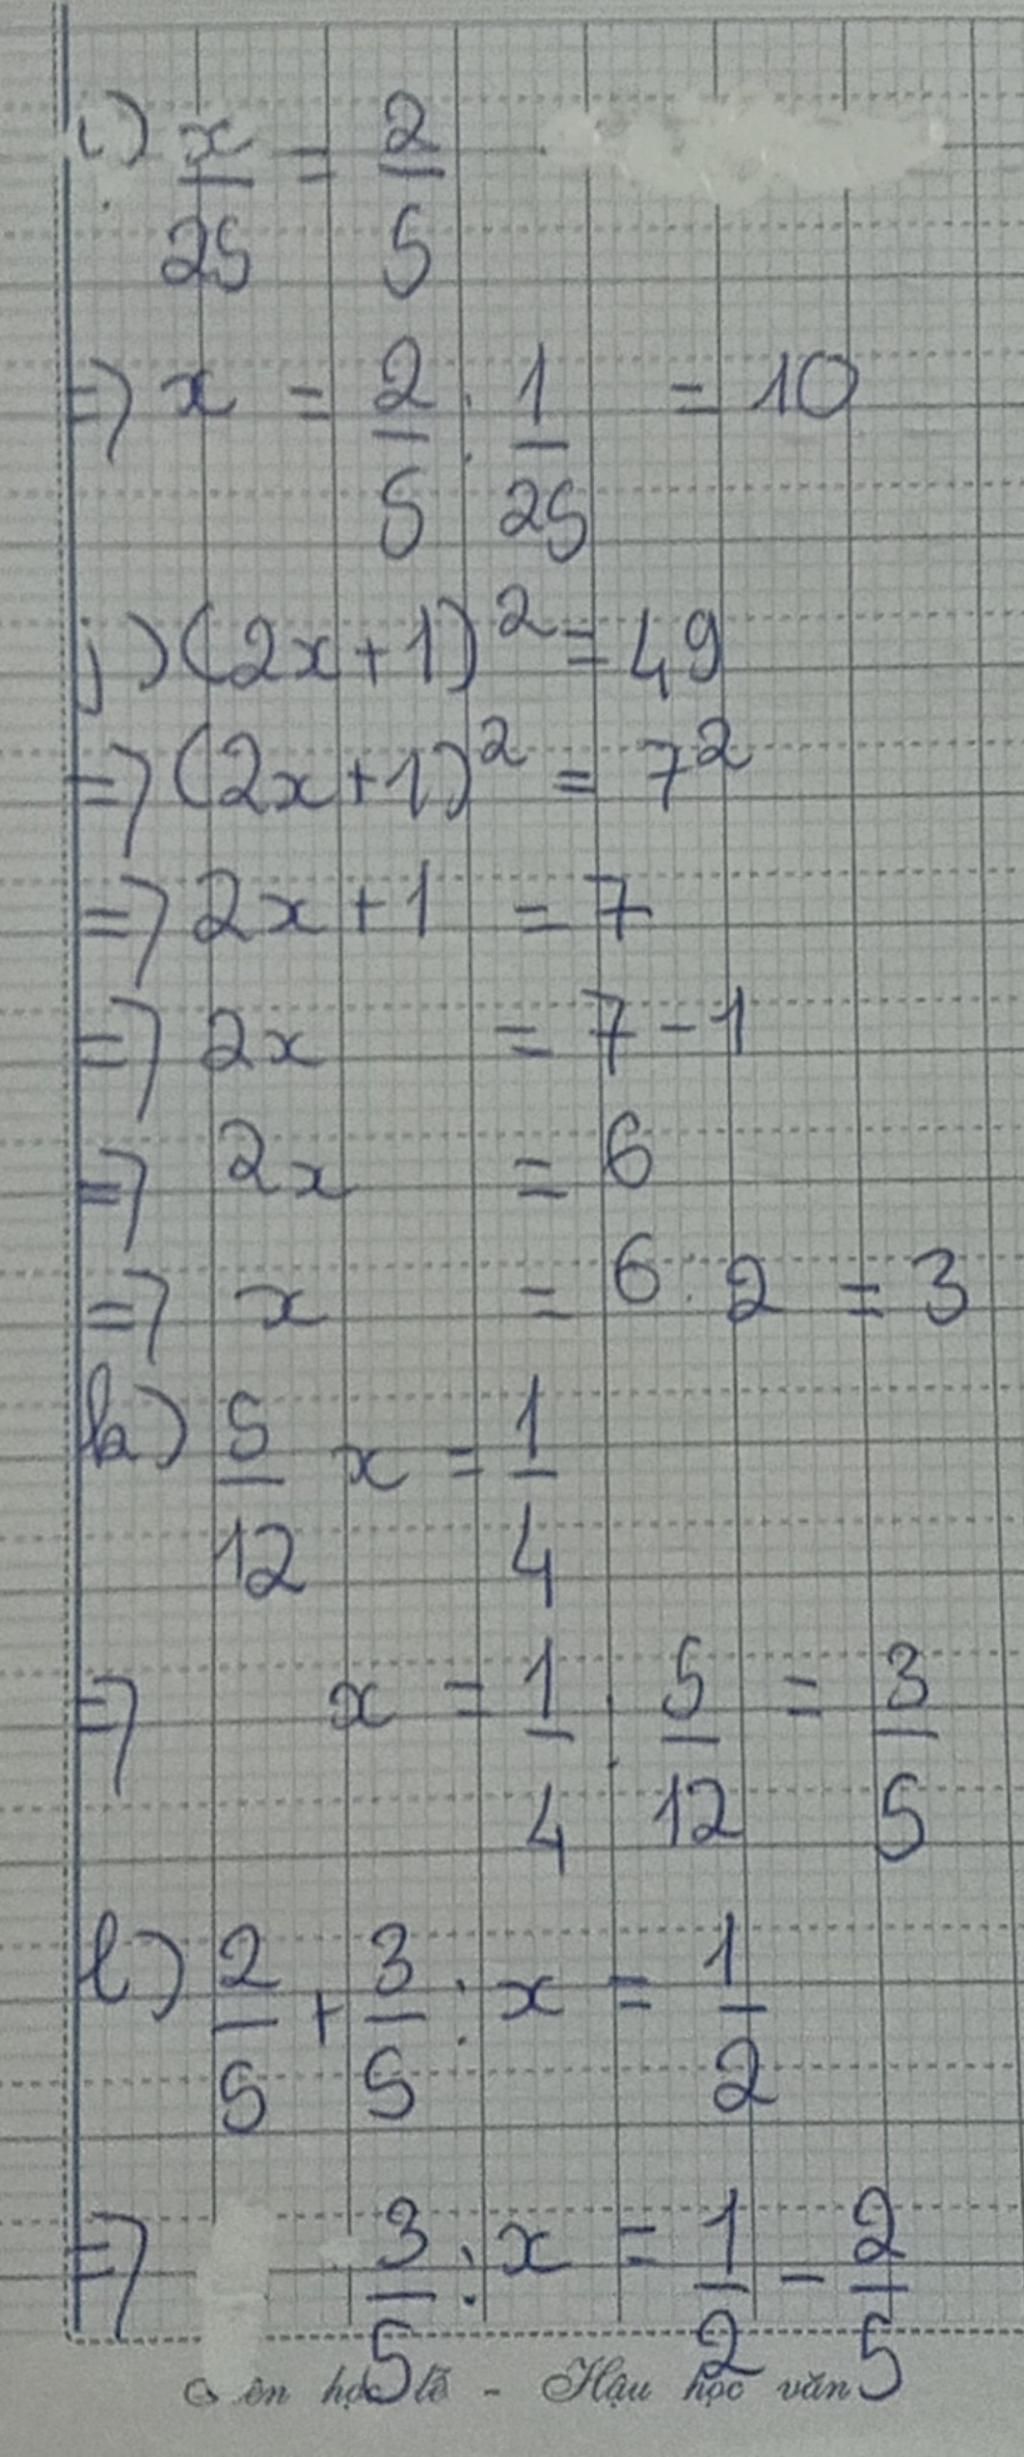 i) x/25 = 2/5
=> x = 2/5 : 1/25 = 10
j) (2x+1)² = 49
=> (2x+1)² = 7²
=> 2x+1 = 7
=> 2x = 7-1
=> 2x = 6
=> x = 6 : 2 = 3
k) 5/12 x = 1/4
=> x = 1/4 : 5/12 = 3/5
l) 2/5 + 3/5 : x = 1/2
=> 3/5 : x = 1/2 - 2/5
ên học lễ - Hậu học văn